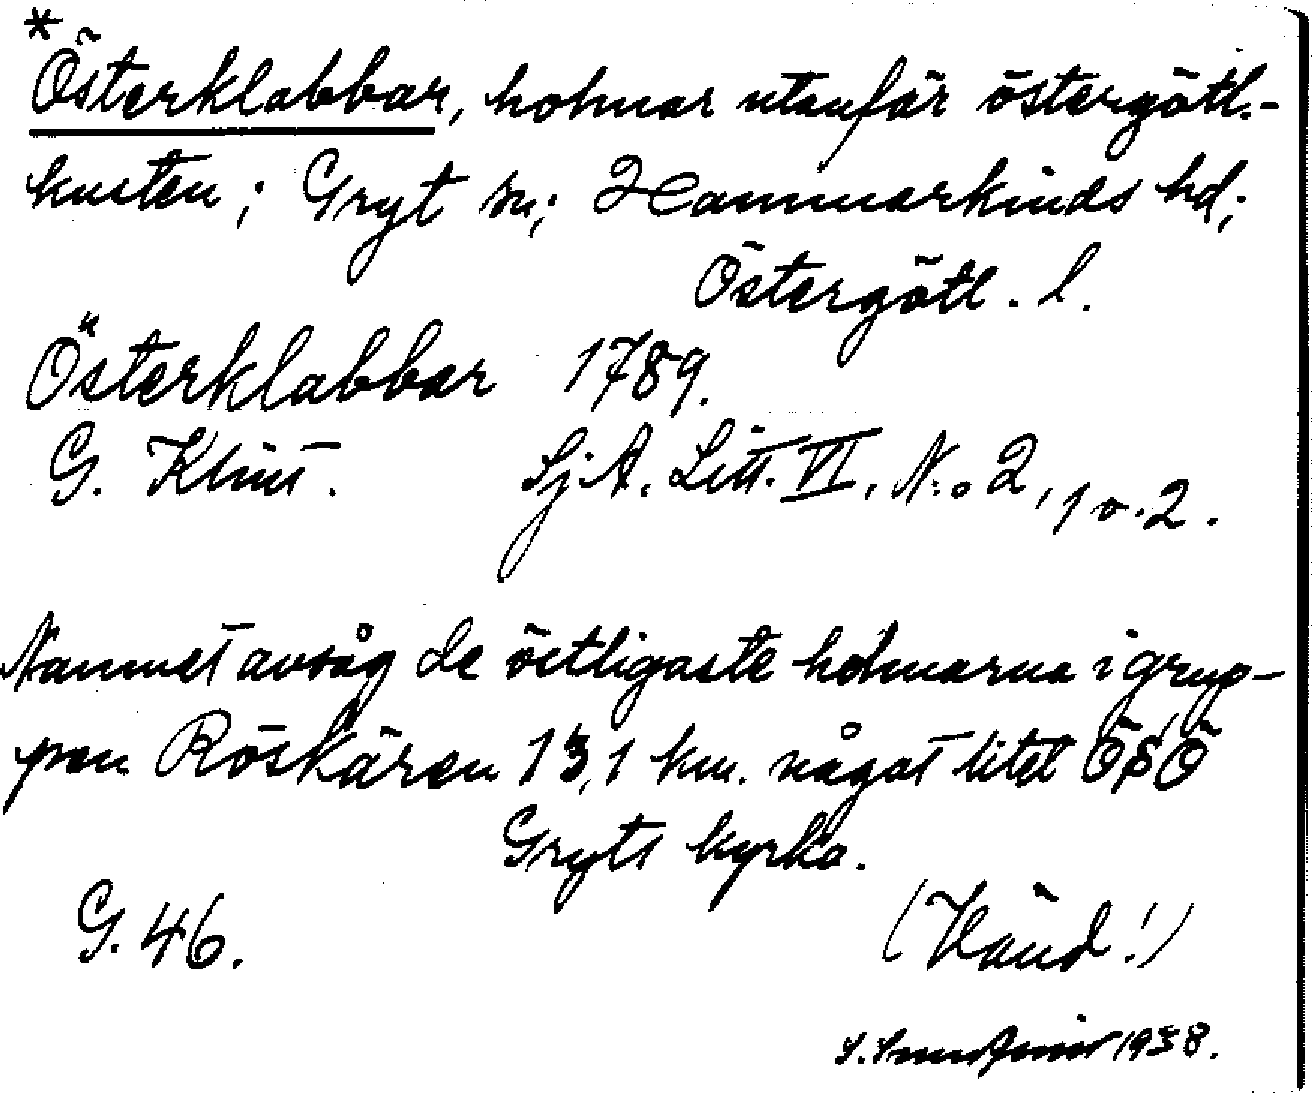 *
Österklabbar, holmar utanför östergötl.-
kusten; Gryt sn; Hammarkinds hd;
Östergötl. l.
Österklabbar 1789.
G. Klint. Sj.A. Litt. VI, N:o 2, 1 o. 2.
Namnet avsåg de östligaste holmarna i grup-
pen Röskären 13,1 km. något litet OSO
Gryts kyrka.
G. 46.
(Vänd!)
1938.